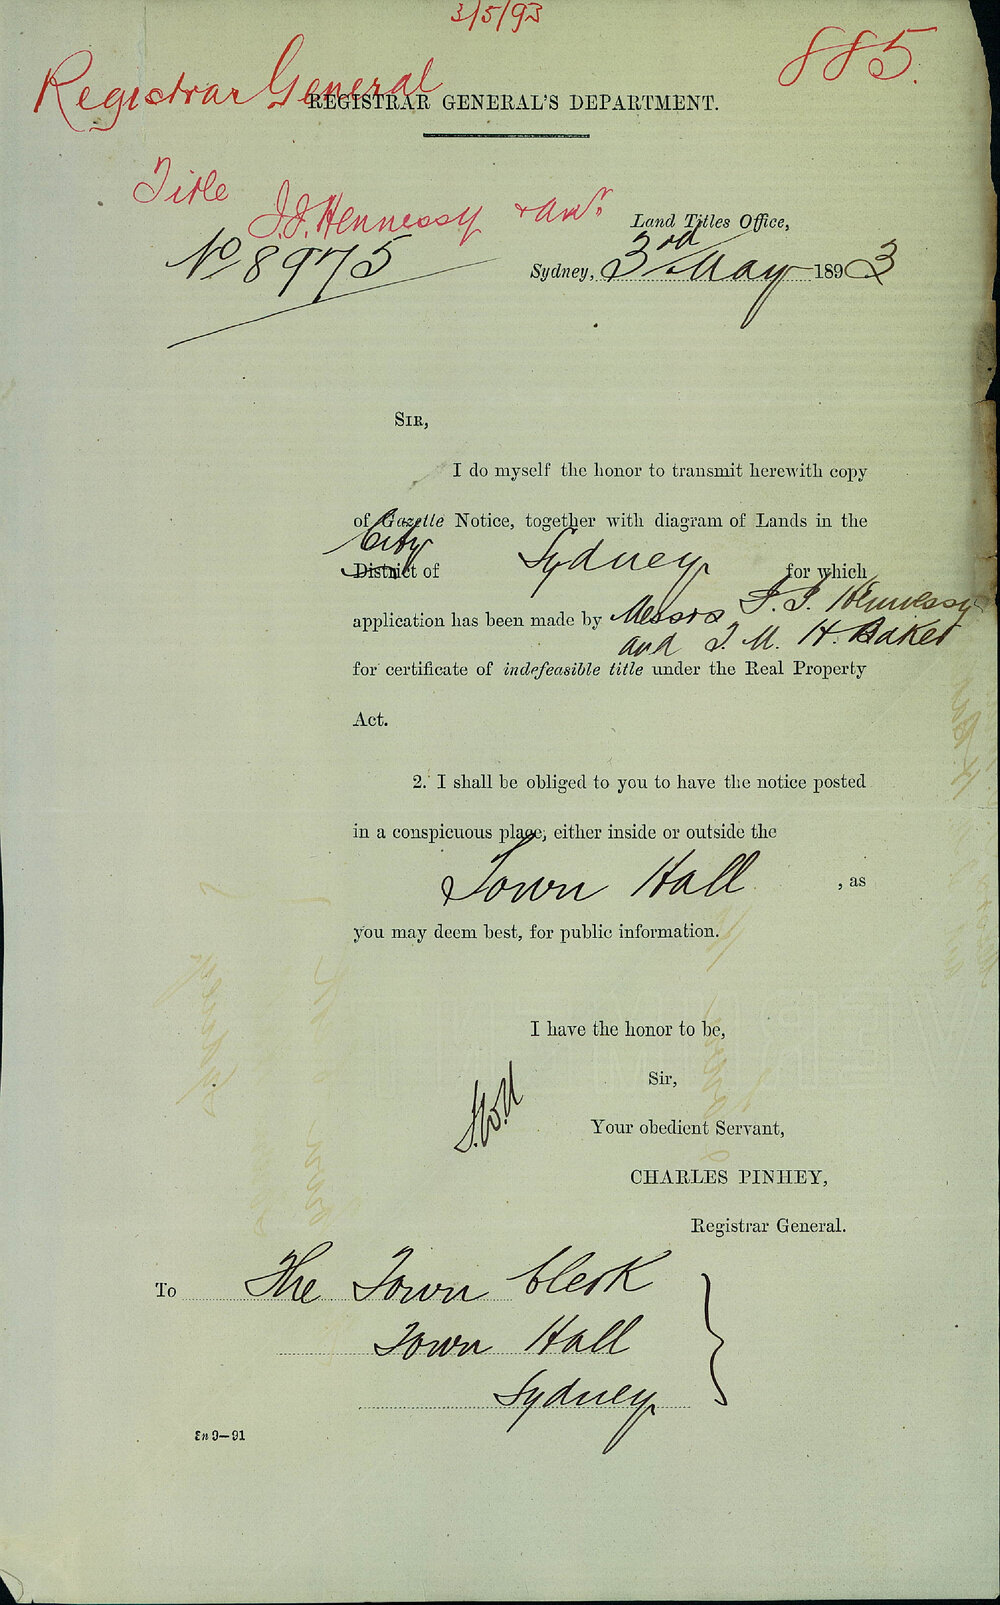 3/5/93
885.
Registrar General
REGISTRAR GENERAL'S DEPARTMENT.
Title
J.J. Hennessy & anr
Land Titles Office,
No 8975
Sydney, 3rd May 1893
SIR,
I do myself the honor to transmit herewith copy
of Gazette Notice, together with diagram of Lands in the
City
District of Sydney for which
application has been made by Messrs J. J. Hennessy
and J. M. H. Baker
for certificate of indefeasible title under the Real Property
Act.
2. I shall be obliged to you to have the notice posted
in a conspicuous place, either inside or outside the
Town Hall , as
you may deem best, for public information.
I have the honor to be,
Sir,
Your obedient Servant,
CHARLES PINHEY,
Registrar General.
To The Town Clerk
Town Hall
Sydney
9—91